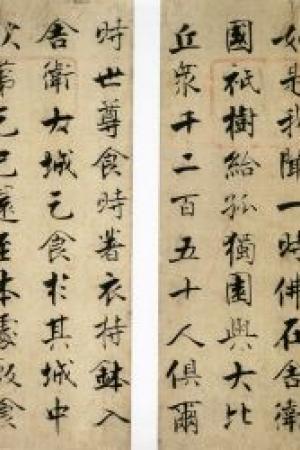 如是我聞一時佛在舍衛
國祇樹給孤獨園與大比
丘衆千二百五十人俱爾
時世尊食時著衣持鉢入
舍衛大城乞食於其城中
次第乞已還至本處飯食